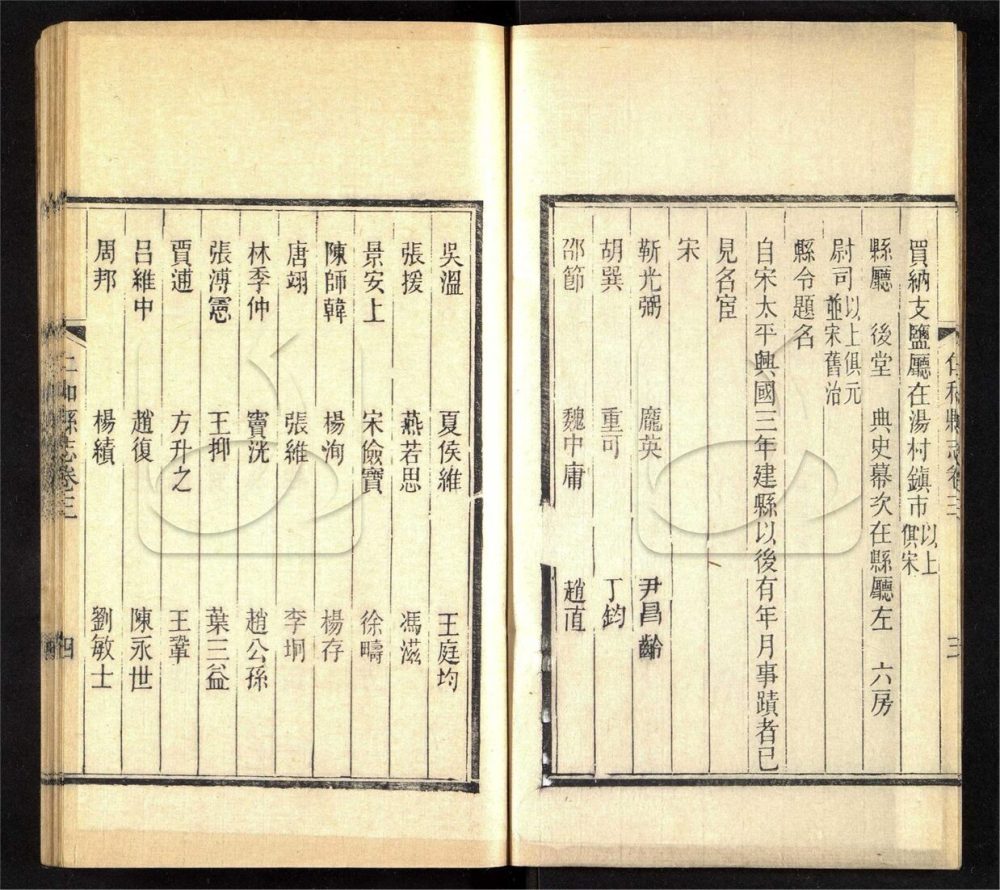 買納支鹽廳在湯村鎮市以上俱宋
縣廳　後堂　典史幕次在縣廳左　六房
尉司以上俱元並宋舊治
縣令題名
自宋太平興國三年建縣以後有年月事蹟者已
見名宦
宋
靳光弼　龐英　尹昌齡
胡巽　重可　丁鈞
邵節　魏中庸　趙直
吳溫　夏侯維　王庭均
張援　燕若思　馮滋
景安上　宋儉寶　徐疇
陳師韓　楊洵　楊存
唐翊　張維　李坰
林季仲　竇洸　趙公孫
張溥　王抑　葉三益
賈逋　方升之　王鞏
呂維中　趙復　陳永世
周邦　楊績　劉敏士
仁和縣志卷三　四